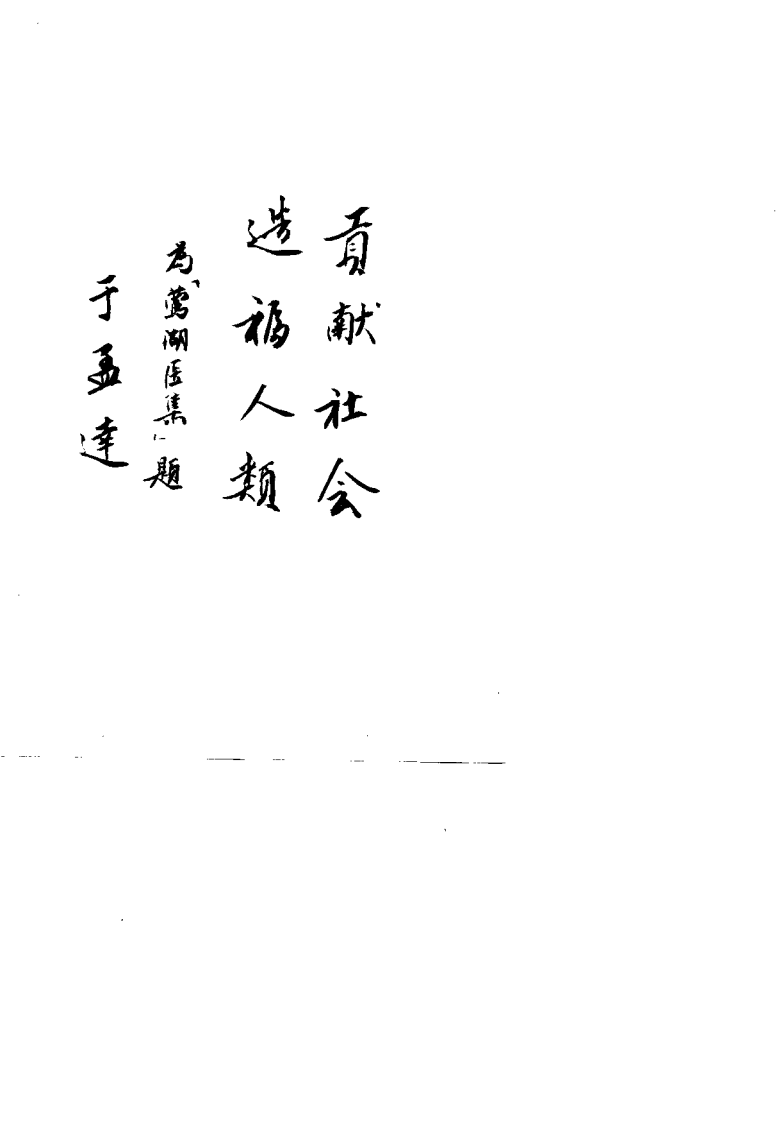 貢献社会
造福人類
為“鶯湖医集”題
于孟達